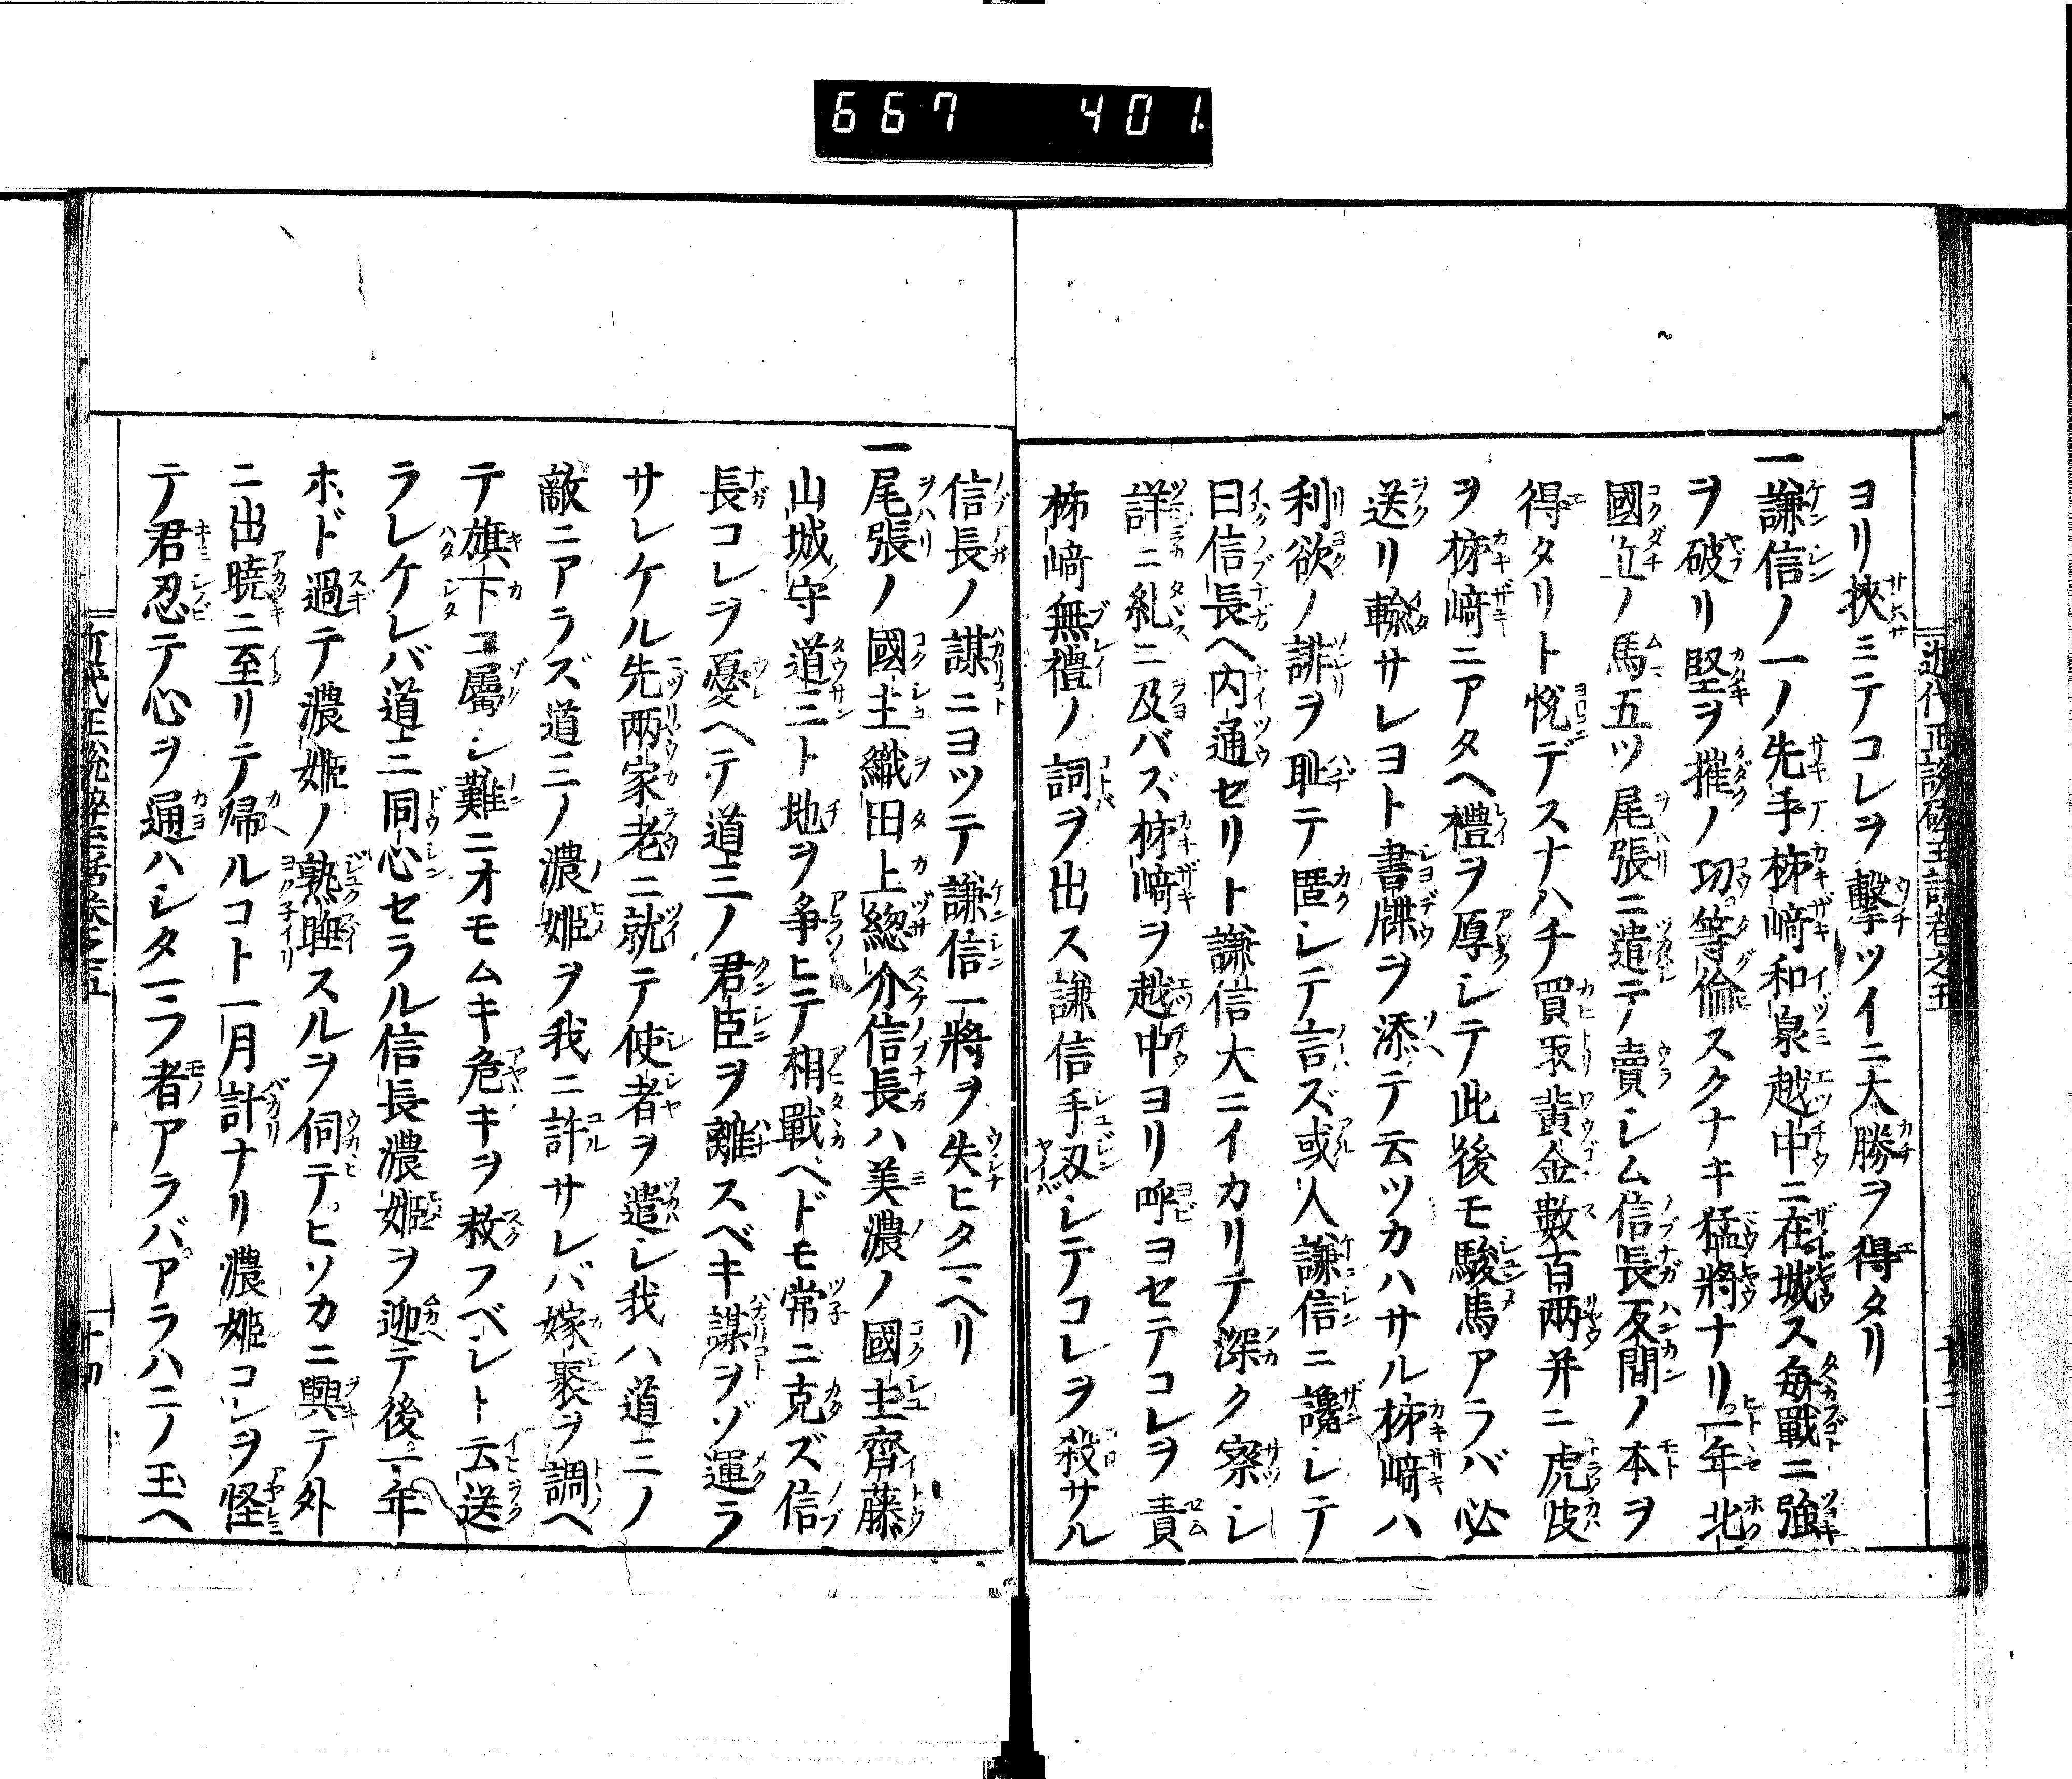 667 401
ヨリ挾ミテコレヲ撃ツイニ大勝ヲ得タリ
一謙信ノ一ノ先手柿﨑和泉越中ニ在城ス毎戰ニ強
ヲ破リ堅ヲ摧ノ功等倫スクナキ猛將ナリ一年北
國立ノ馬五ツ尾張ニ遣テ賣シム信長反間ノ本ヲ
得タリト悦デスナハチ買取黄金數百両并ニ虎皮
ヲ柿﨑ニアタヘ禮ヲ厚シテ此後モ駿馬アラバ必
送リ輸サレヨト書牒ヲ添テ云ツカハサル柿﨑ハ
利欲ノ誹ヲ耻テ匿シテ言ズ或人謙信ニ讒シテ
曰信長ヘ内通セリト謙信大ニイカリテ深ク察シ
詳ニ糺ニ及バズ柿﨑ヲ越中ヨリ呼ヨセテコレヲ責
柿﨑無禮ノ詞ヲ出ス謙信手刄シテコレヲ殺サル
信長ノ謀ニヨツテ謙信一將ヲ失ヒタマヘリ
一尾張ノ國主織田上総介信長ハ美濃ノ國主齊藤
山城守道三ト地ヲ爭ヒテ相戰ヘドモ常ニ克ズ信
長コレヲ憂ヘテ道三ノ君臣ヲ離スベキ謀ヲゾ運ラ
サレケル先両家老ニ就テ使者ヲ遣シ我ハ道三ノ
敵ニアラズ道三ノ濃姫ヲ我ニ許サレバ嫁娶ヲ調ヘ
テ旗下ニ屬シ難ニオモムキ危キヲ救フベシト云送
ラレケレバ道三同心セラル信長濃姫ヲ迎テ後一年
ホド過テ濃姫ノ熟睡スルヲ伺テヒソカニ興テ外
ニ出曉ニ至リテ帰ルコト一月計ナリ濃姫コレヲ怪
テ君忍テ心ヲ通ハシタマフ者アラバアラハニノ玉ヘ